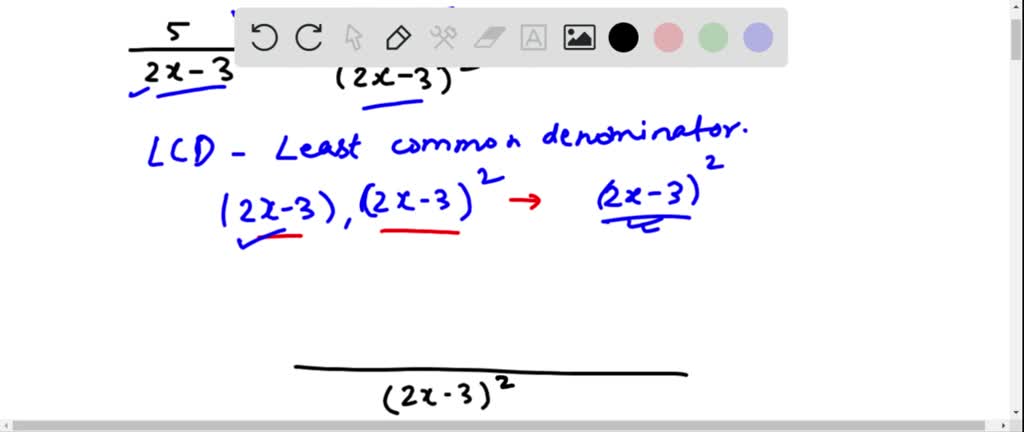 5
2x-3 (2x-3)²
LCD - Least common denominator.
(2x-3), (2x-3)² → (2x-3)²
(2x-3)²